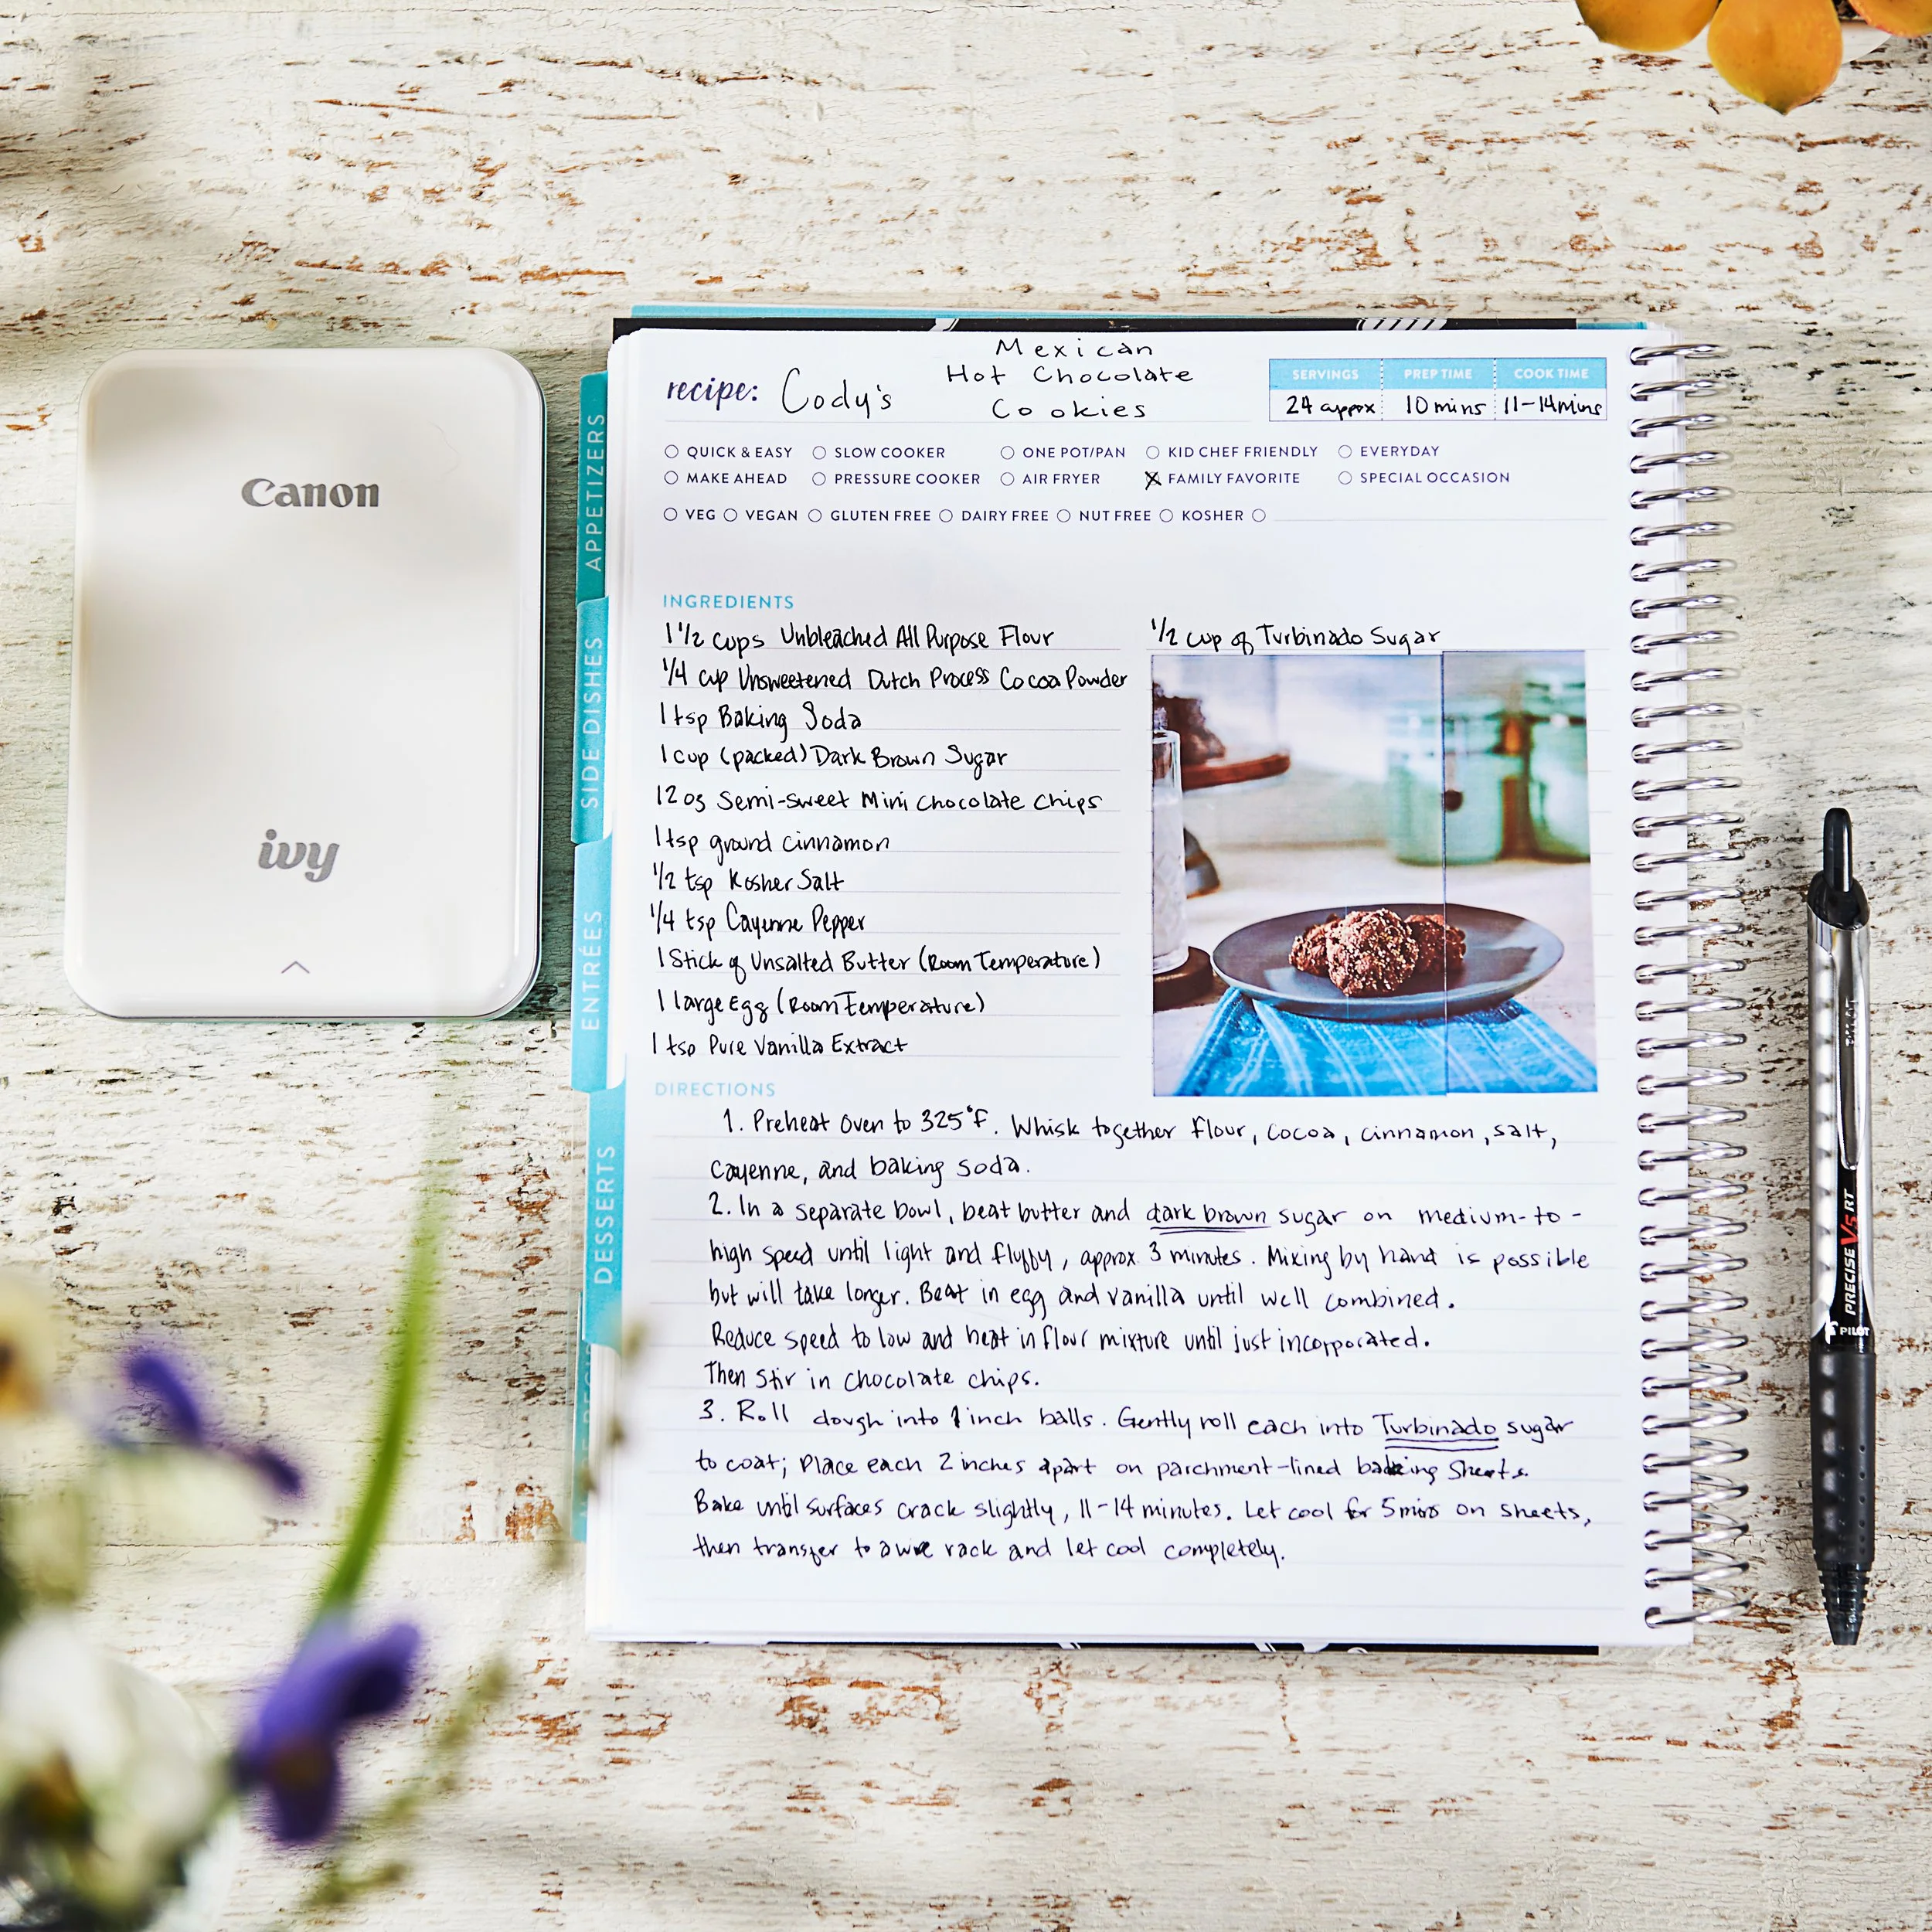 Canon
ivy
APPETIZERS
SIDE DISHES
ENTRÉES
DESSERTS
recipe: Cody's Mexican
Hot Chocolate
Cookies
SERVINGS PREP TIME COOK TIME
24 approx 10 mins 11-14 mins
QUICK & EASY SLOW COOKER ONE POT/PAN KID CHEF FRIENDLY EVERYDAY
MAKE AHEAD PRESSURE COOKER AIR FRYER FAMILY FAVORITE SPECIAL OCCASION
VEG VEGAN GLUTEN FREE DAIRY FREE NUT FREE KOSHER
INGREDIENTS
1 1/2 cups Unbleached All Purpose Flour
1/4 cup Unsweetened Dutch Process Cocoa Powder
1 tsp Baking Soda
1 cup (packed) Dark Brown Sugar
12 oz Semi-sweet Mini Chocolate Chips
1 tsp ground cinnamon
1/2 tsp Kosher Salt
1/4 tsp Cayenne Pepper
1 Stick of Unsalted Butter (Room Temperature)
1 large Egg (Room Temperature)
1 tsp Pure Vanilla Extract
1/2 cup of Turbinado Sugar
DIRECTIONS
1. Preheat Oven to 325°F. Whisk together flour, cocoa, cinnamon, salt,
cayenne, and baking soda.
2. In a separate bowl, beat butter and dark brown sugar on medium-to-
high speed until light and fluffy, approx 3 minutes. Mixing by hand is possible
but will take longer. Beat in egg and vanilla until well combined.
Reduce speed to low and beat in flour mixture until just incorporated.
Then stir in chocolate chips.
3. Roll dough into 1 inch balls. Gently roll each into Turbinado sugar
to coat; Place each 2 inches apart on parchment-lined baking Sheets.
Bake until surfaces crack slightly, 11-14 minutes. Let cool for 5 mins on sheets,
then transfer to a wire rack and let cool completely.
PILOT PRECISE V5 RT